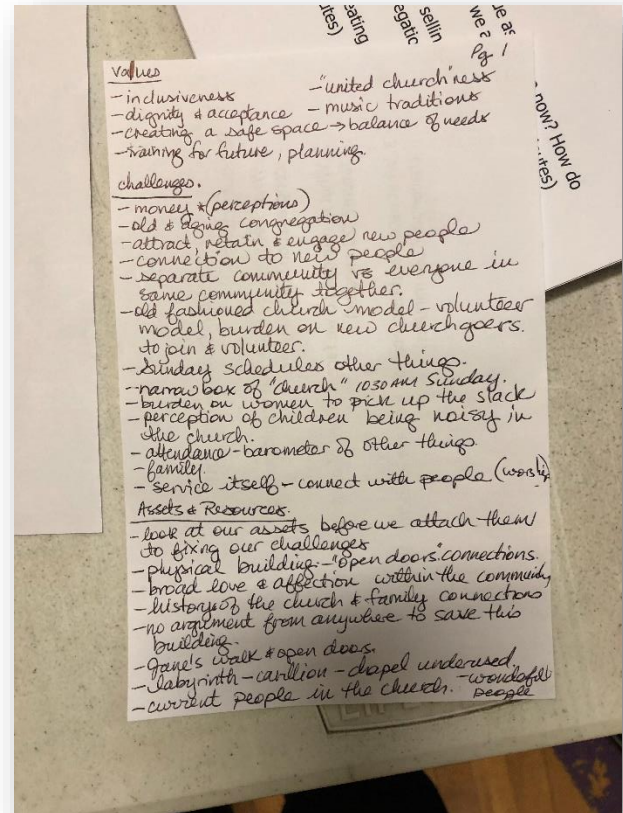 Pg 1
Values
- inclusiveness
- "united church"ness
- dignity & acceptance
- music traditions
- creating a safe space → balance of needs
- training for future, planning.
challenges.
- money * (perceptions)
- old & aging congregation
- attract, retain & engage new people
- connection to new people
- separate community vs everyone in
same community together.
- old fashioned church model - volunteer
model, burden on new churchgoers.
to join & volunteer.
- Sunday schedules other things.
- narrow box of "church" 1030 AM Sunday.
- burden on women to pick up the slack
- perception of children being noisy in
the church.
- attendance - barometer of other things
- family.
- service itself - connect with people (worship)
Assets & Resources.
- look at our assets before we attach them
to fixing our challenges
- physical building - "open doors" connections.
- broad love & affection within the community
- history of the church & family connections
- no argument from anywhere to save this
building.
- Jane's walk & open doors.
- labyrinth - carillion - chapel underused.
- current people in the church. - wonderful
people
now? How do
utes)
we a
sellin
egatic
eating
utes)